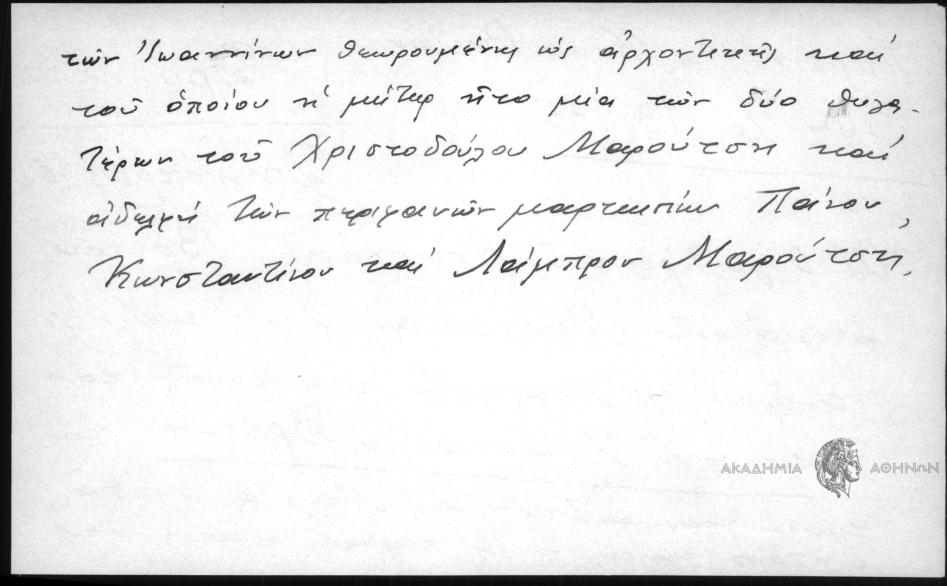 τῶν Ἰωαννίνων θεωρουμένης ὡς ἀρχοντικῆς καί
τοῦ ὁποίου ἡ μήτηρ ἦτο μία τῶν δύο θυγα-
τέρων τοῦ Χριστοδούλου Μαρούτση καί
ἀδελφή τῶν περιφανῶν μαρκησίων Πάνου,
Κωνσταντίνου καί Λάμπρου Μαρούτση.
ΑΚΑΔΗΜΙΑ ΑΘΗΝΩΝ